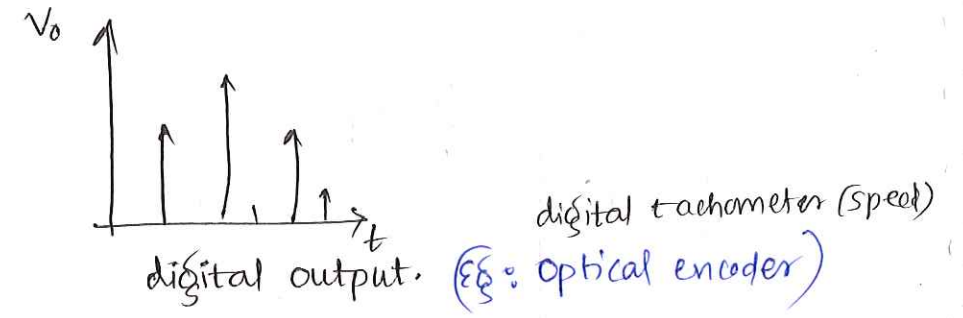 V₀
t
digital tachometer (speed)
digital output. (Eg: optical encoder)